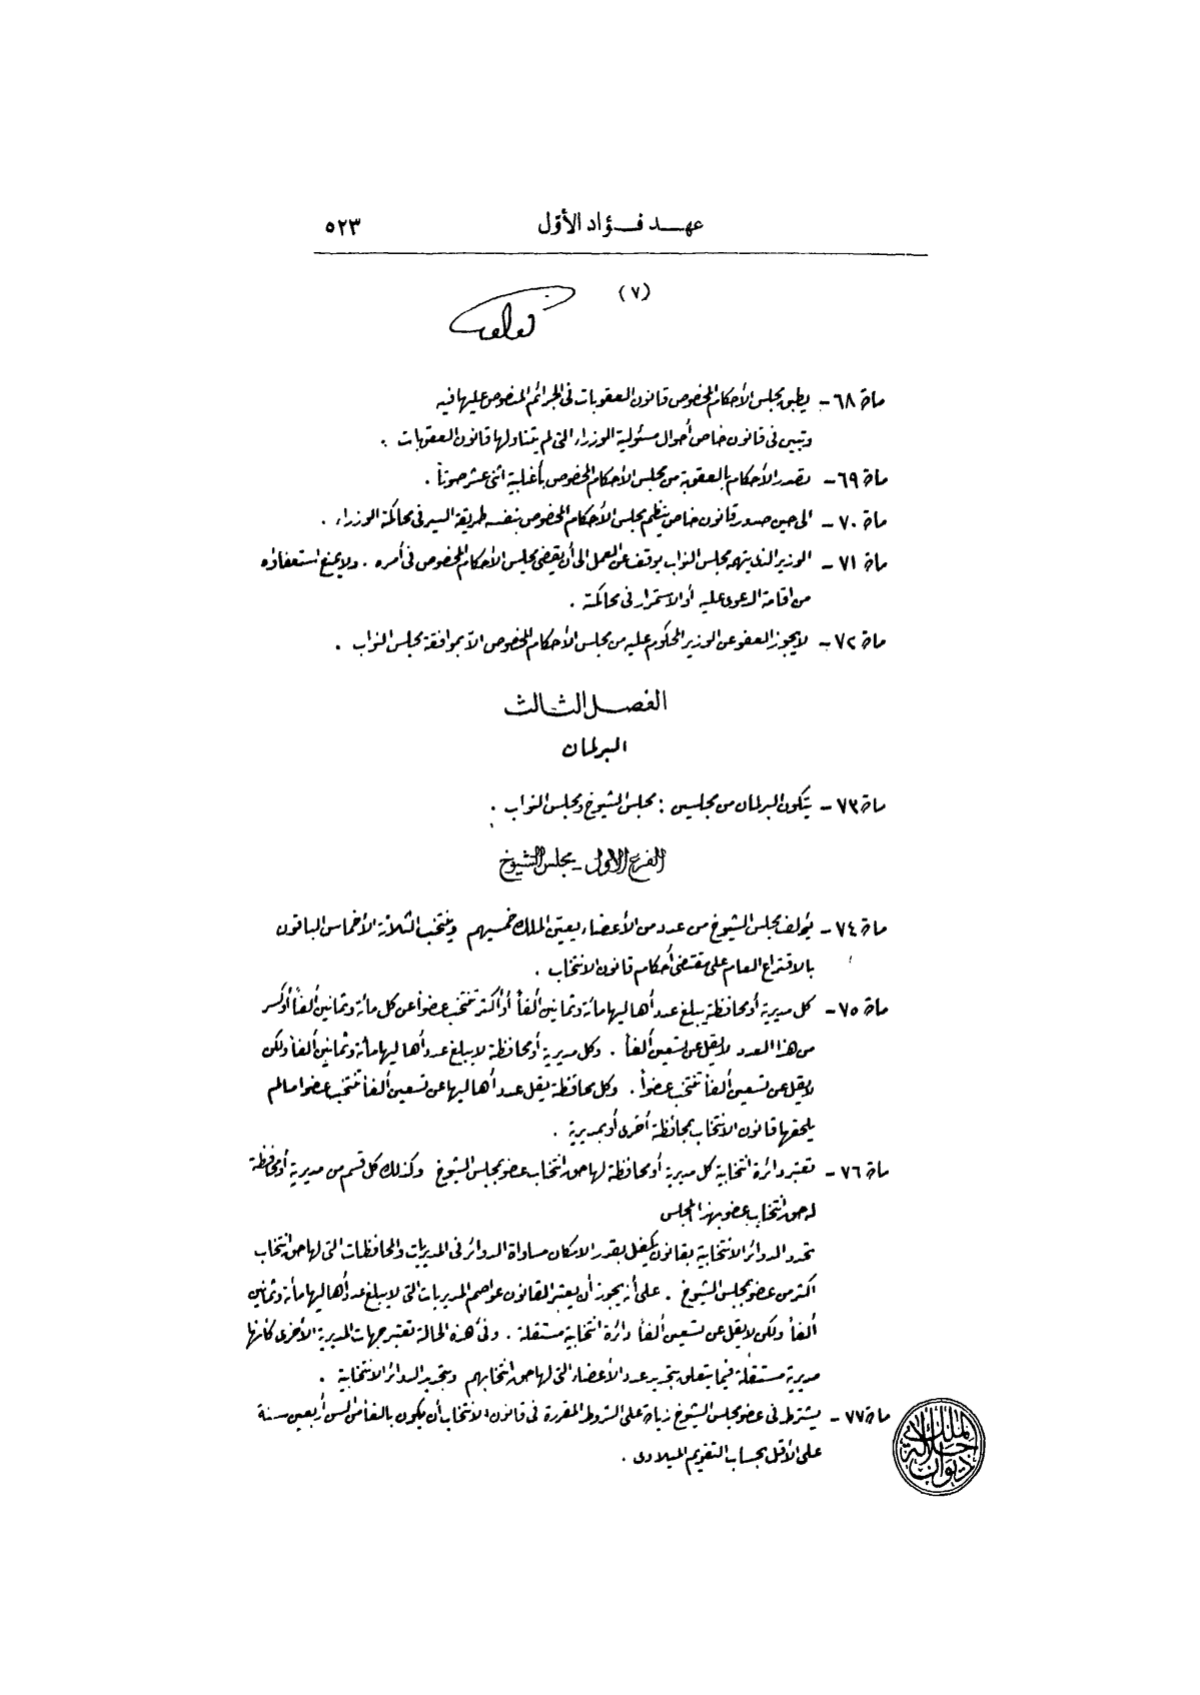 عهد فؤاد الأوّل ٥٢٣
(٧)
مادة ٦٨ - يطبق مجلس الأحكام المخصوص قانون العقوبات فى الجرائم المنصوص عليها فيه
وتبين فى قانون خاص أحوال مسئولية الوزراء التى لم يتناولها قانون العقوبات .
مادة ٦٩ - تصدر الأحكام بالعقوبة من مجلس الأحكام المخصوص بأغلبية اثنى عشر صوتاً .
مادة ٧٠ - الى حين صدور قانون خاص ينظم مجلس الأحكام المخصوص بنفسه طريقة السير فى محاكمة الوزراء .
مادة ٧١ - الوزير الذى يتهمه مجلس النواب يوقف عن العمل الى أن يقضى مجلس الأحكام المخصوص فى أمره . ولا يمنع استعفاؤه
من اقامة الدعوى عليه أو الاستمرار فى محاكمته .
مادة ٧٢ - لا يجوز العفو عن الوزير المحكوم عليه من مجلس الأحكام المخصوص الاّ بموافقة مجلس النواب .
الفصل الثالث
البرلمان
مادة ٧٣ - يتكون البرلمان من مجلسين : مجلس الشيوخ ومجلس النواب .
الفرع الأول - مجلس الشيوخ
مادة ٧٤ - يؤلف مجلس الشيوخ من عدد من الأعضاء يعين الملك خمسيهم وينتخب الثلاثة الأخماس الباقون
بالاقتراع العام على مقتضى أحكام قانون الانتخاب .
مادة ٧٥ - كل مديرية أو محافظة يبلغ عدد أهاليها مائة وثمانين ألفاً أو أكثر تنتخب عضواً عن كل مائة وثمانين ألفاً أو كسر
من هذا العدد لا يقل عن تسعين ألفاً . وكل مديرية أو محافظة لا يبلغ عدد أهاليها مائة وثمانين ألفاً ولكن
لا يقل عن تسعين ألفاً تنتخب عضواً . وكل محافظة يقل عدد أهاليها عن تسعين ألفاً تنتخب عضوا ما لم
يلحقها قانون الانتخاب بمحافظة أخرى أو بمديرية .
مادة ٧٦ - تعتبر دائرة انتخابية كل مديرية أو محافظة لها حق انتخاب عضو بمجلس الشيوخ وكذلك كل قسم من مديرية أو محافظة
له حق انتخاب عضو بهذا المجلس
تحدد الدوائر الانتخابية بقانون يكفل بقدر الامكان مساواة الدوائر فى المديريات والمحافظات التى لها حق انتخاب
اكثر من عضو بمجلس الشيوخ . على أنه يجوز أن يعتبر القانون عواصم المديريات التى لا يبلغ عدد أهاليها مائة وثمانين
ألفاً ولكن لا يقل عن تسعين ألفاً دائرة انتخابية مستقلة . وفى هذه الحالة تعتبر جهات المديرية الأخرى كأنها
مديرية مستقلة فيما يتعلق بتحديد عدد الأعضاء التى لها حق انتخابهم وبتحديد الدوائر الانتخابية .
مادة ٧٧ - يشترط فى عضو مجلس الشيوخ زيادة على الشروط المقررة فى قانون الانتخاب أن يكون بالغاً من السن أربعين سنة
على الأقل بحساب التقويم الميلادى .
ديوان جلالة الملك